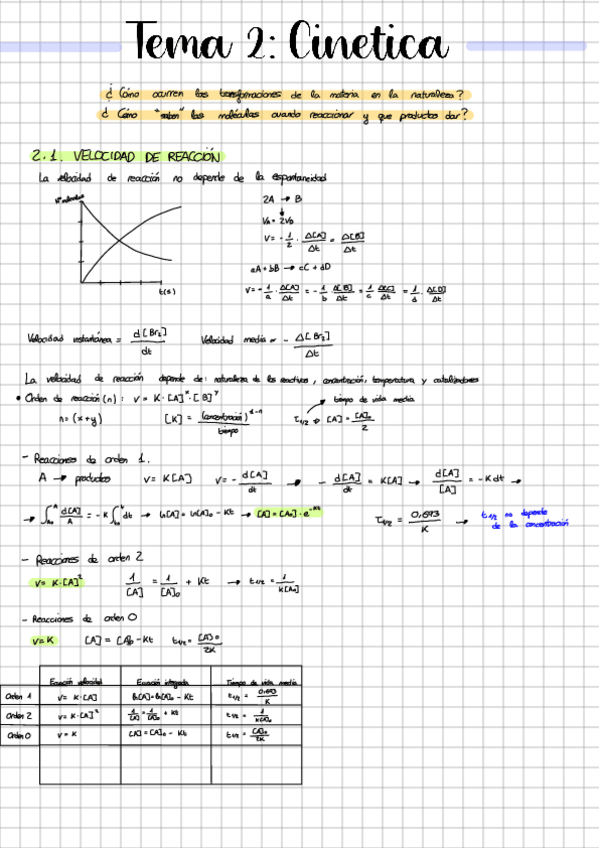 Tema 2: Cinetica
¿ Cómo ocurren las transformaciones de la materia en la naturaleza?
¿ Cómo "saben" las moléculas cuando reaccionar y que productos dar?
2.1. VELOCIDAD DE REACCIÓN
La velocidad de reacción no depende de la espontaneidad
2A → B
V = - 1/2 · Δ[A]/Δt = Δ[B]/Δt
t(s)
aA + bB → cC + dD
V = - 1/a · Δ[A]/Δt = - 1/b · Δ[B]/Δt = 1/c · Δ[C]/Δt = 1/d · Δ[D]/Δt
Velocidad instantánea = d[Br₂]/dt Velocidad media = - Δ[Br₂]/Δt
La velocidad de reacción depende de: naturaleza de los reactivos, concentración, temperatura y catalizadores
• Orden de reacción (n): v = K·[A]ˣ·[B]ʸ tiempo de vida media
n = (x+y) [K] = (concentración)¹⁻ⁿ/tiempo τ₁/₂ ⇒ [A] = [A]₀/2
- Reacciones de orden 1.
A → productos v = K[A] v = - d[A]/dt → - d[A]/dt = K[A] → d[A]/[A] = -Kdt →
→ d[A]/A = -K dt → ln[A] = ln[A]₀ - Kt → [A] = [A₀]·e⁻ᴷᵗ τ₁/₂ = 0,693/K → t₁/₂ no depende
de la concentración
- Reacciones de orden 2
v = K·[A]² 1/[A] = 1/[A]₀ + Kt → t₁/₂ = 1/K[A₀]
- Reacciones de orden 0
v = K [A] = [A]₀ - Kt t₁/₂ = [A]₀/2K
Ecuación velocidad Ecuación integrada Tiempo de vida media
Orden 1 v = K·[A] ln[A] = ln[A]₀ - Kt t₁/₂ = 0,693/K
Orden 2 v = K·[A]² 1/[A] = 1/[A]₀ + Kt t₁/₂ = 1/K[A]₀
Orden 0 v = K [A] = [A]₀ - Kt t₁/₂ = [A]₀/2K